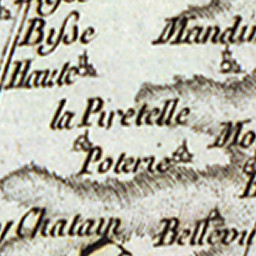 Bysse
Mandin
Haute
la Piretelle
Mo
Poterie
y Chatain
Bellevu